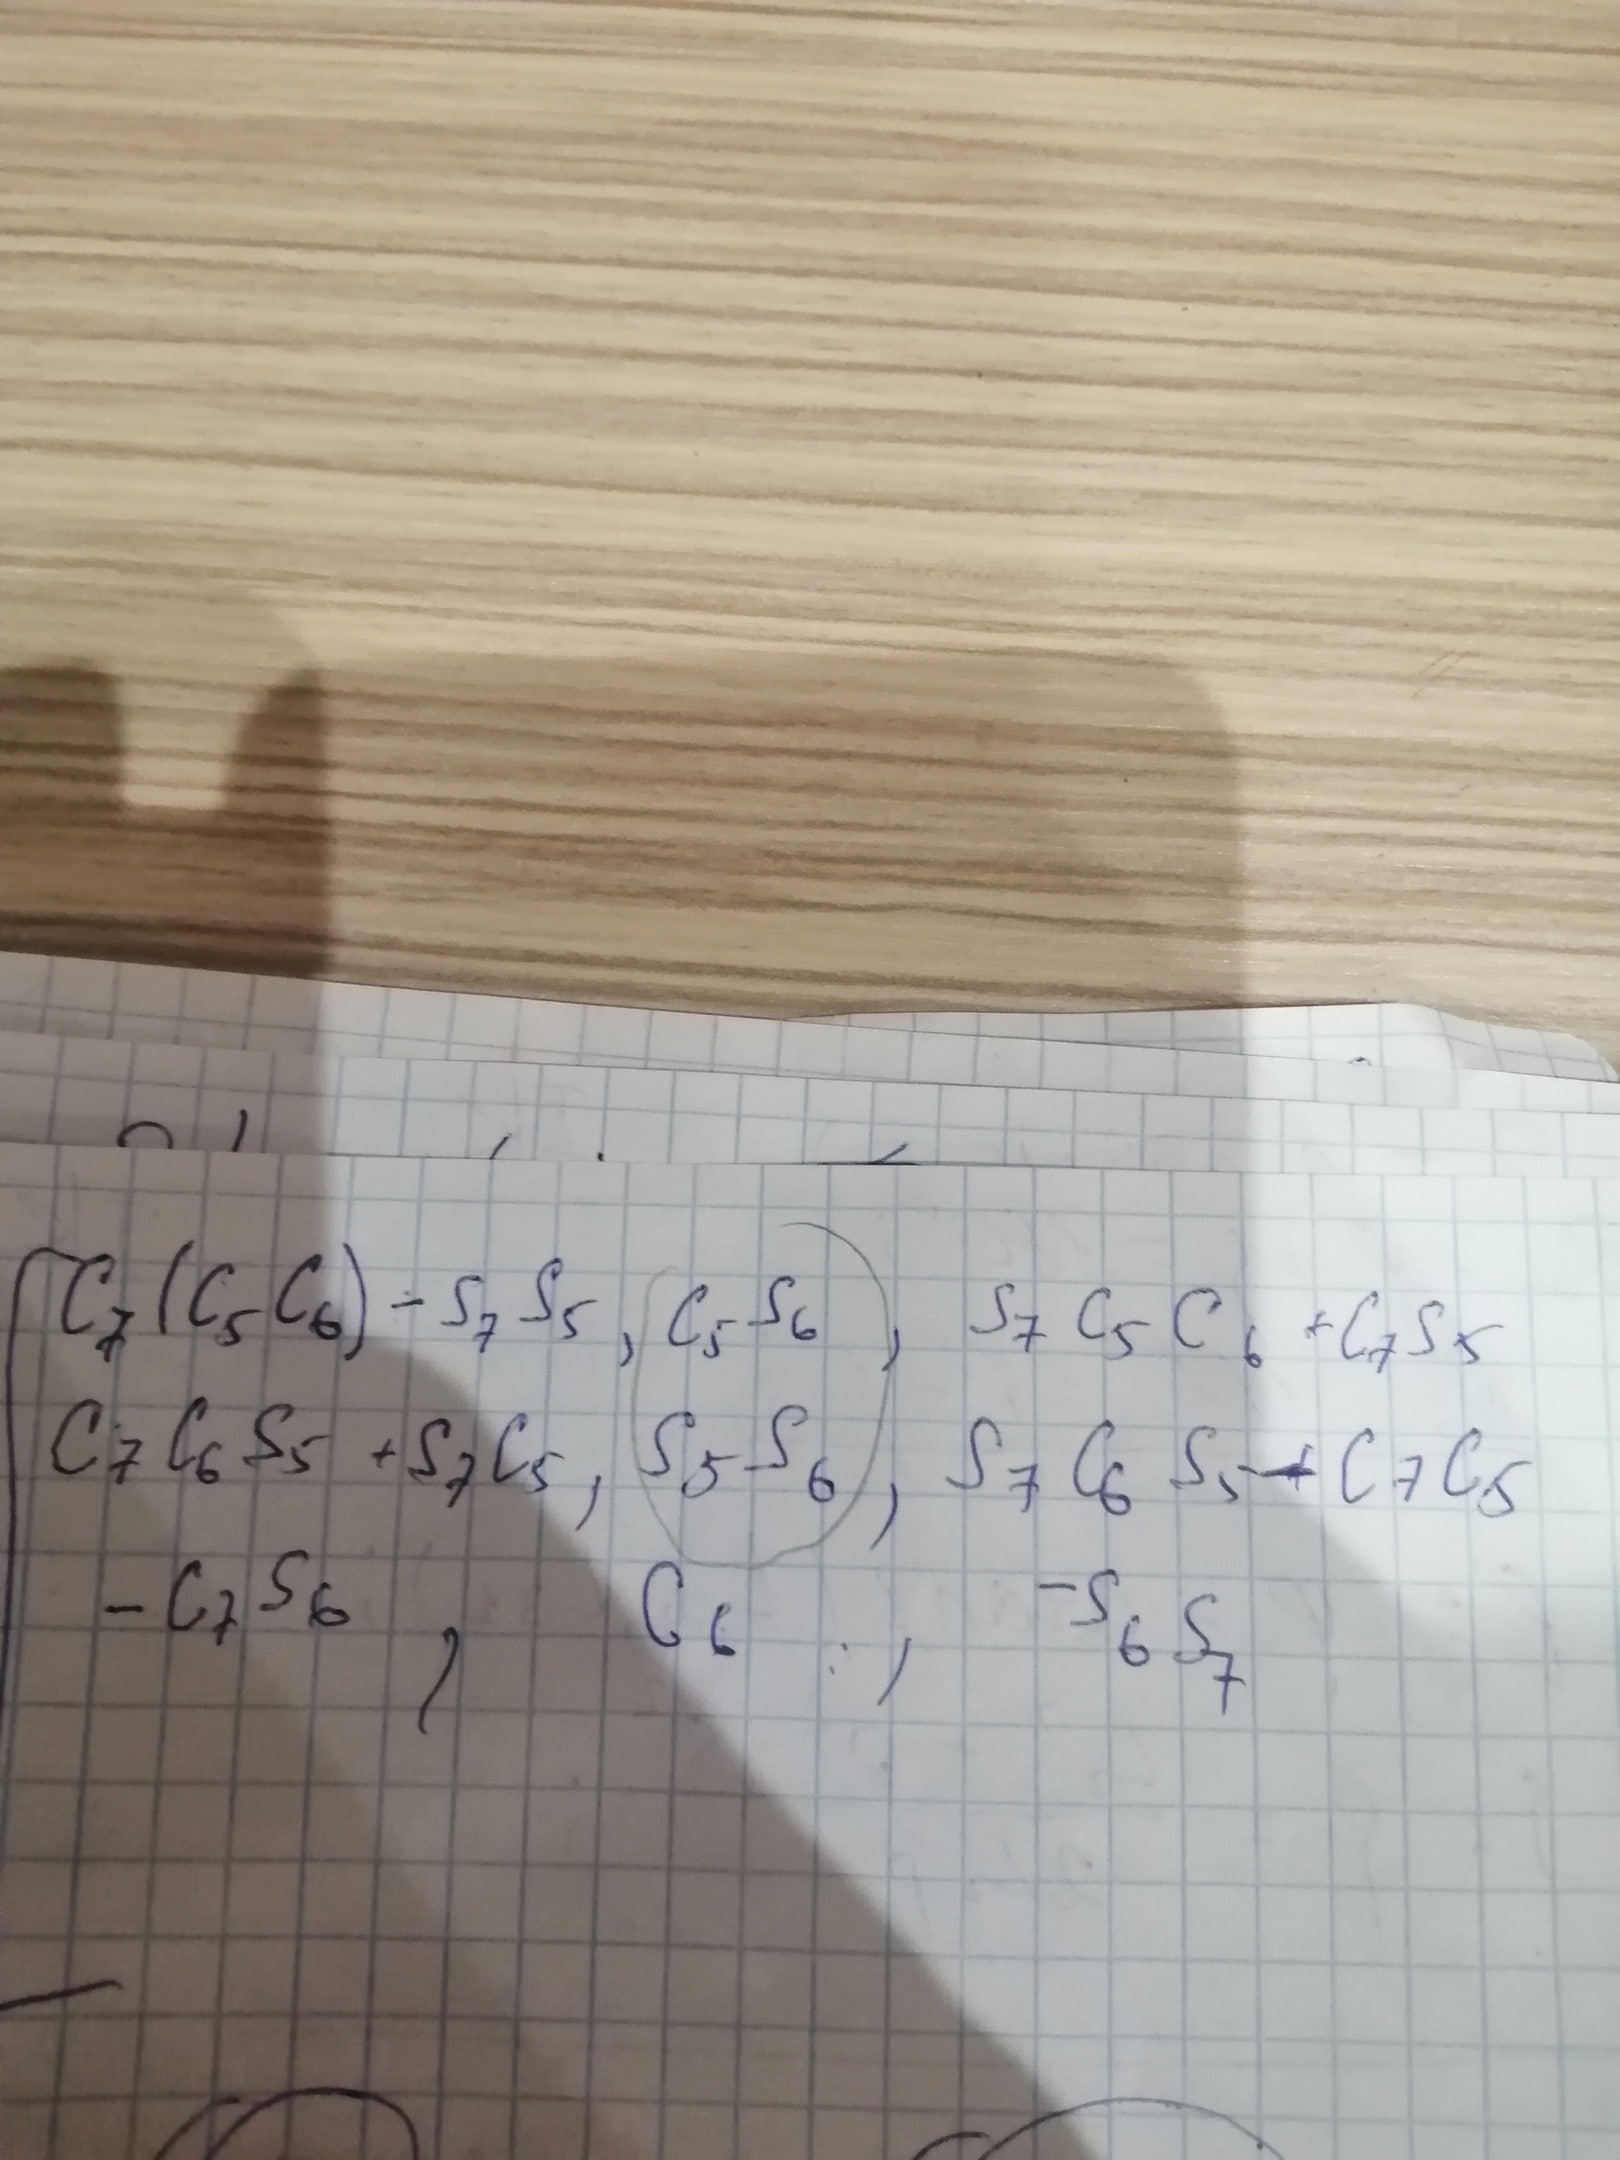 C₇(C₅C₆) - S₇S₅, C₅S₆, S₇C₅C₆ + C₇S₅
C₇C₆S₅ + S₇C₅, S₅S₆, S₇C₆S₅ - C₇C₅
-C₇S₆, C₆, -S₆S₇